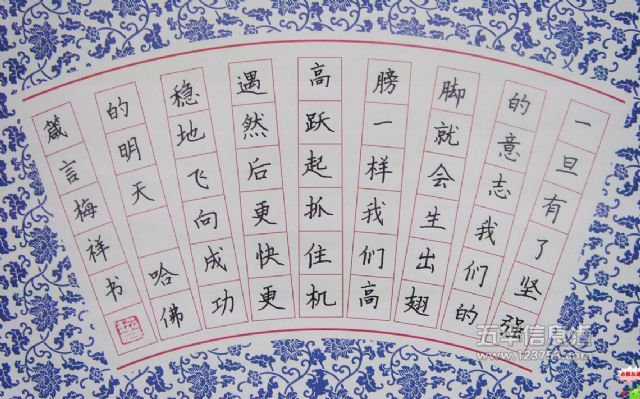 一旦有了坚强
的意志我们的
脚就会生出翅
膀一样我们高
高跃起抓住机
遇然后更快更
稳地飞向成功
的明天 哈佛
箴言梅祥书